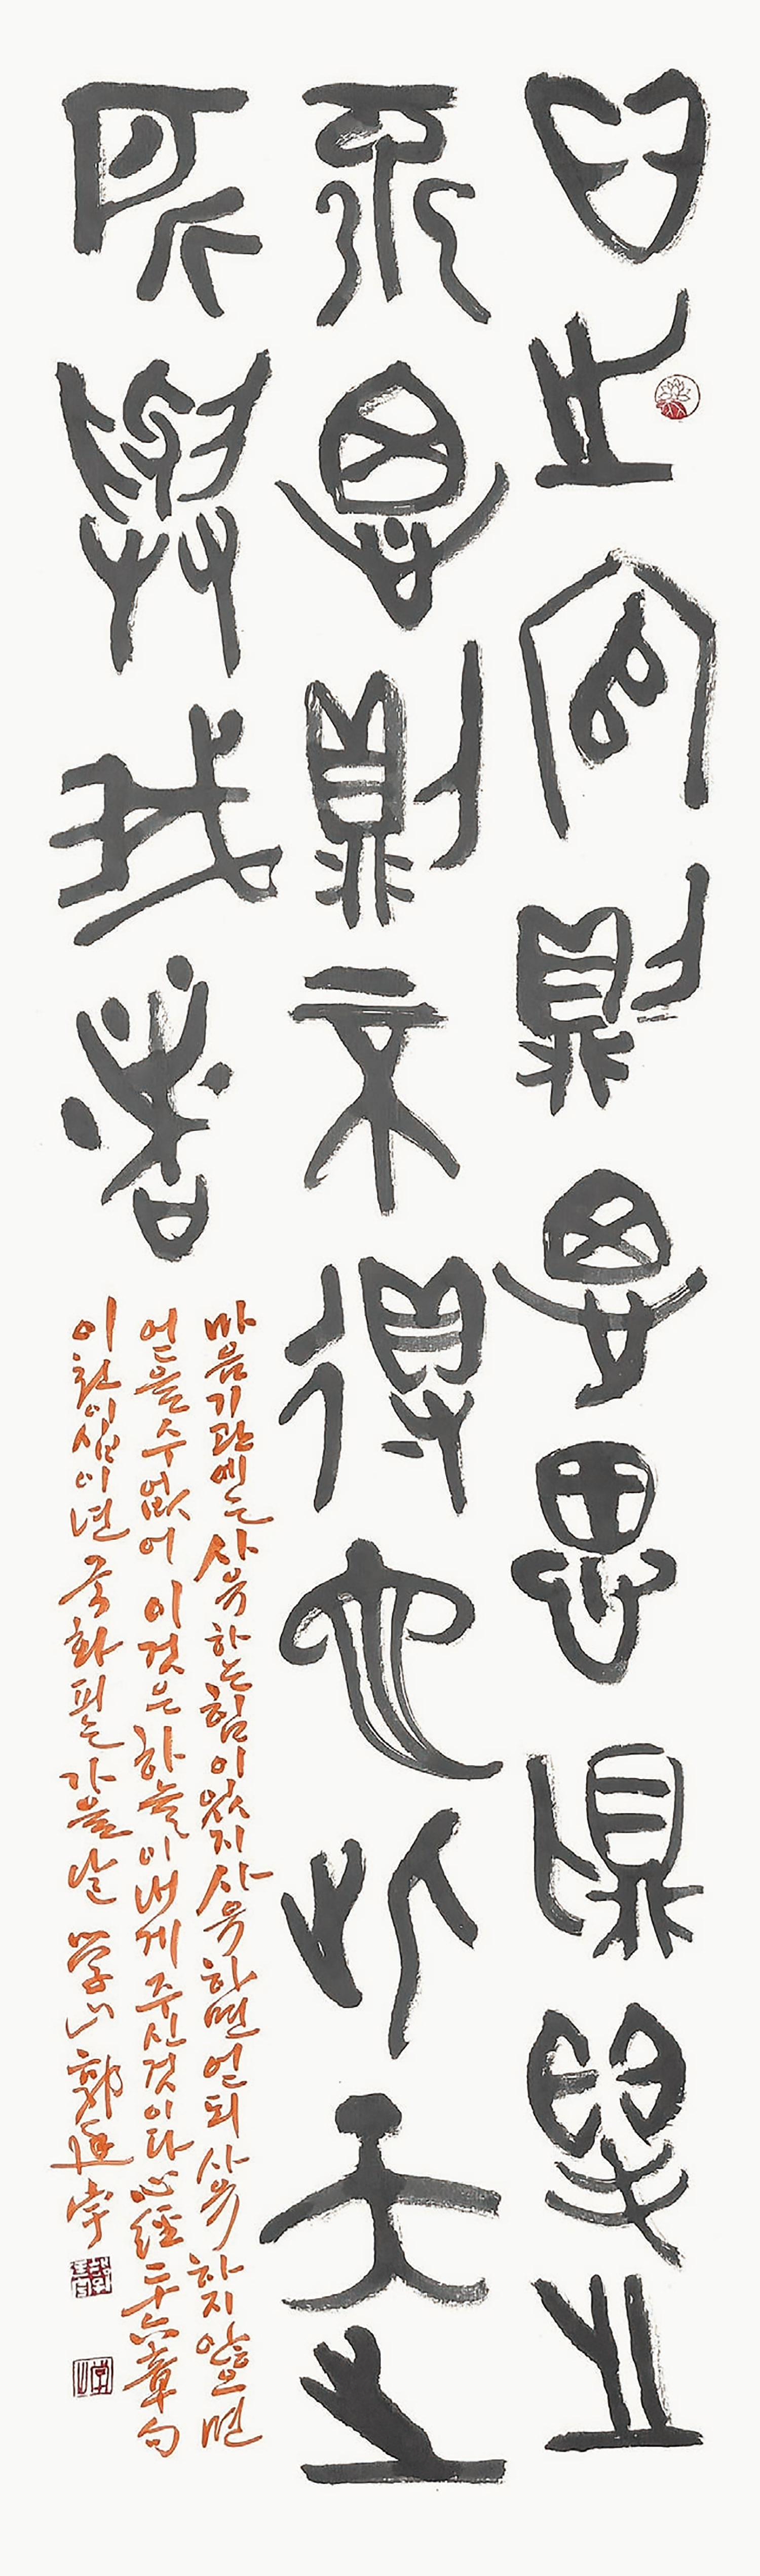 心之官則思思則得之
不思則不得也此天之
所與我者
마음기관에는 사유하는 힘이 있지 사유하면 얻되 사유하지 않으면
얻을 수 없어 이것은 하늘이 내게 주신 것이다 心經二十六章句
이천이십이년 국화 피는 가을날 学山 郭廷宇